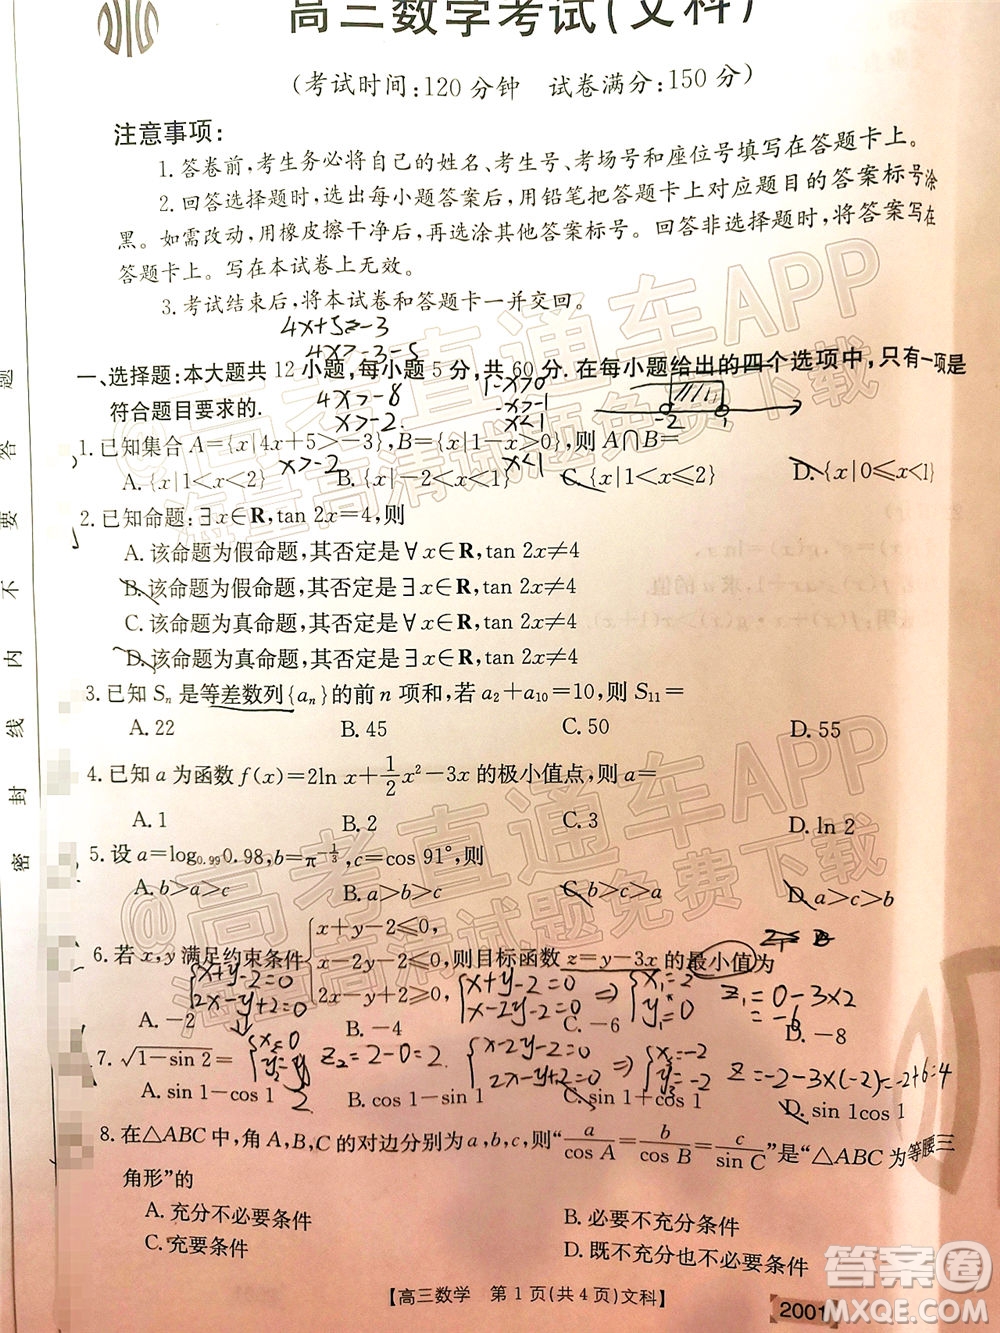 高三数学考试(文科)
(考试时间:120分钟 试卷满分:150分)
注意事项:
1.答卷前,考生务必将自己的姓名、考生号、考场号和座位号填写在答题卡上。
2.回答选择题时,选出每小题答案后,用铅笔把答题卡上对应题目的答案标号涂
黑。如需改动,用橡皮擦干净后,再选涂其他答案标号。回答非选择题时,将答案写在
答题卡上。写在本试卷上无效。
3.考试结束后,将本试卷和答题卡一并交回。
4x+5>-3
4x>-3-5
一、选择题:本大题共12小题,每小题5分,共60分.在每小题给出的四个选项中,只有一项是
符合题目要求的.
4x>-8 1-x>0
x>-2. -x>-1 x<1 -2 1
1.已知集合A={x|4x+5>-3},B={x|1-x>0},则A∩B=
x>-2 x<1
A.{x|1<x<2} B.{x|-2<x<1} C.{x|1<x<2} D.{x|0≤x<1}
2.已知命题:∃x∈R,tan 2x=4,则
A.该命题为假命题,其否定是∀x∈R,tan 2x≠4
B.该命题为假命题,其否定是∃x∈R,tan 2x≠4
C.该命题为真命题,其否定是∀x∈R,tan 2x≠4
D.该命题为真命题,其否定是∃x∈R,tan 2x≠4
3.已知Sₙ是等差数列{aₙ}的前n项和,若a₂+a₁₀=10,则S₁₁=
A.22 B.45 C.50 D.55
4.已知a为函数f(x)=2ln x+1/2x²-3x的极小值点,则a=
A.1 B.2 C.3 D.ln 2
5.设a=log₀.₉₉0.98,b=π^(-1/3),c=cos 91°,则
A.b>a>c B.a>b>c C.b>c>a D.a>c>b
6.若x,y满足约束条件{x+y-2≤0, x-2y-2≤0, 2x-y+2≥0,则目标函数z=y-3x的最小值为
{x+y-2=0 2x-y+2=0 {x+y-2=0 x-2y-2=0 ⇒ {x₁=2 y₁=0 z₁=0-3×2 =-6
A.-2 B.-4 C.-6 D.-8
{x=0 y=2 z₂=2-0=2. {x-2y-2=0 2x-y+2=0 ⇒ {x=-2 y=-2 z=-2-3×(-2)=-2+6=4
7.√1-sin 2=
A.sin 1-cos 1 B.cos 1-sin 1 C.sin 1+cos 1 D.sin 1cos 1
8.在△ABC中,角A,B,C的对边分别为a,b,c,则“a/cos A=b/cos B=c/sin C”是“△ABC为等腰三
角形”的
A.充分不必要条件 B.必要不充分条件
C.充要条件 D.既不充分也不必要条件
【高三数学 第1页(共4页)文科】
2001
密 封 线 内 不 要 答 题
@高考直通车APP
海量高清试题免费下载
@高考直通车APP
海量高清试题免费下载
答案圈
MXQE.COM